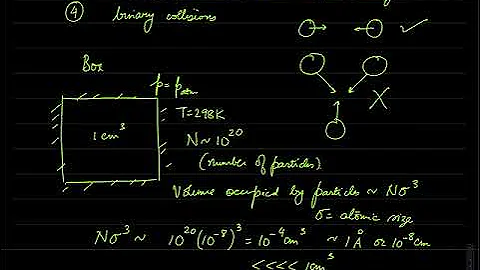 ④ binary collisions
Box
p = p_atm
T=298K
1 cm³
N ~ 10²⁰
(number of particles)
Volume occupied by particles ~ Nσ³
σ = atomic size
Nσ³ ~ 10²⁰(10⁻⁸)³ = 10⁻⁴cm³ ~ 1 Å or 10⁻⁸cm
<<<< 1cm³